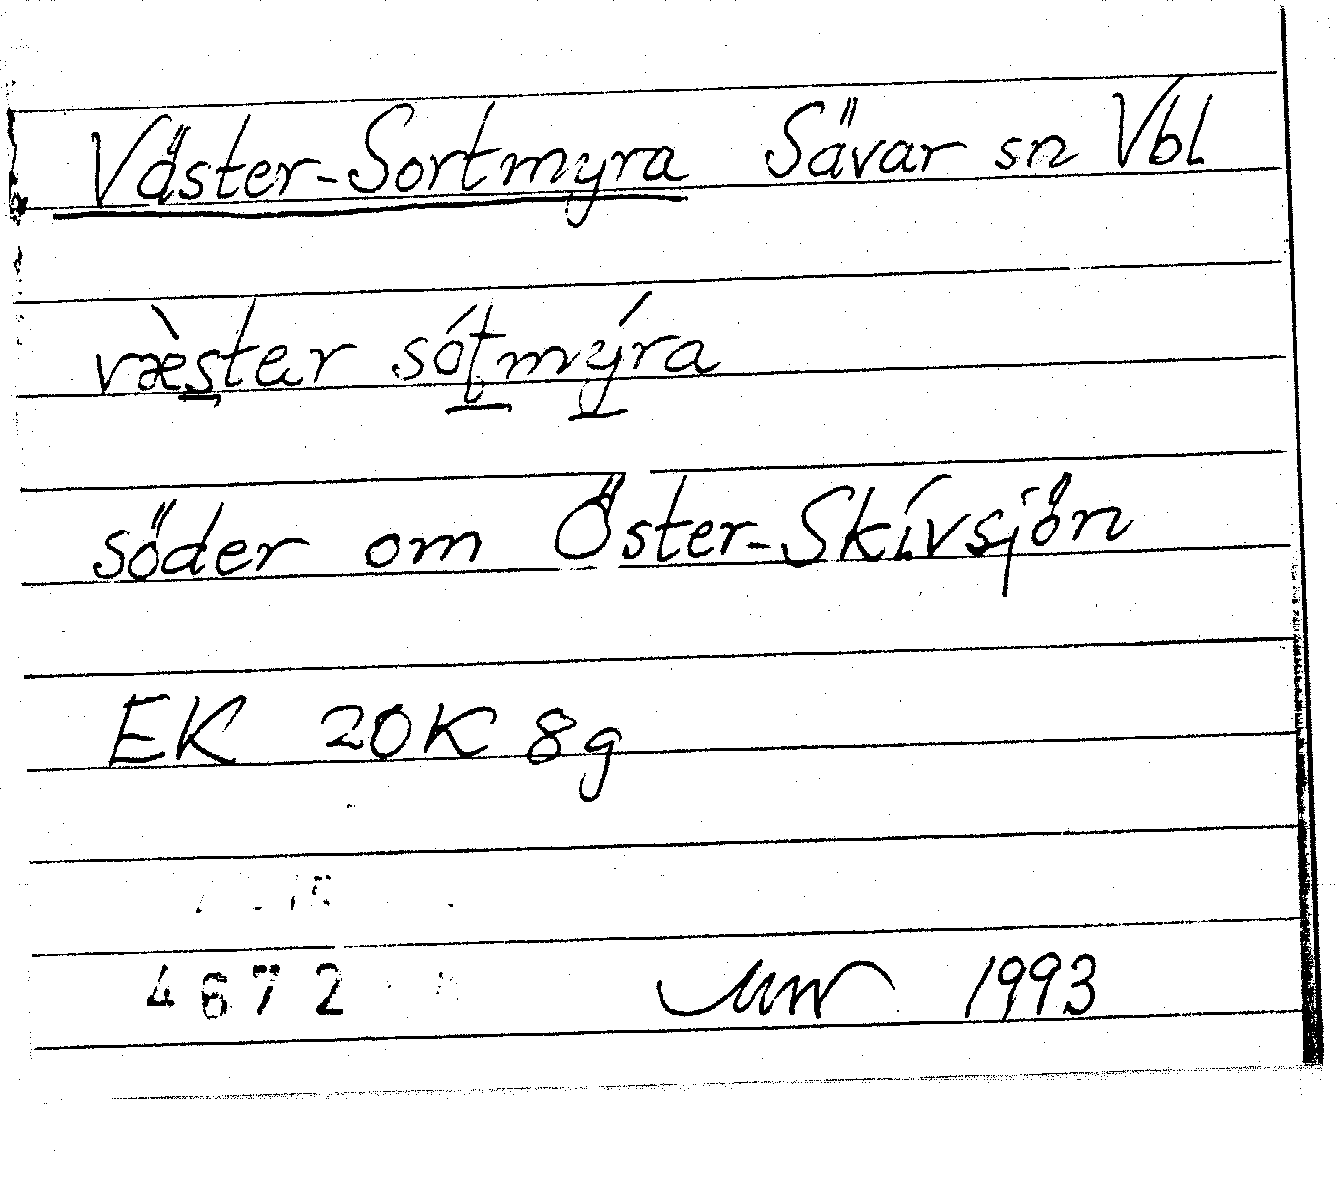 Väster-Sortmyra Sävar sn Vbl
væ̀stær sóʈmýra
söder om Öster-Skivsjön
EK 20K 8g
4672 1993